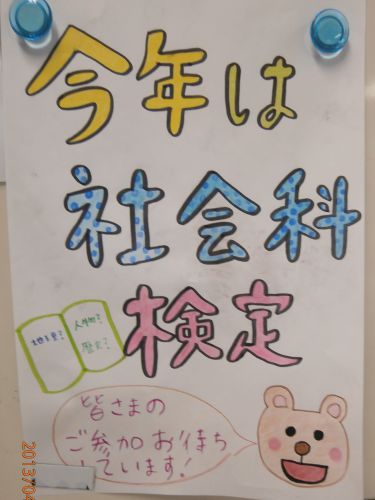 今年は
社会科
検定
人物?
歴史?
皆さまの
ご参加お待ち
しています!